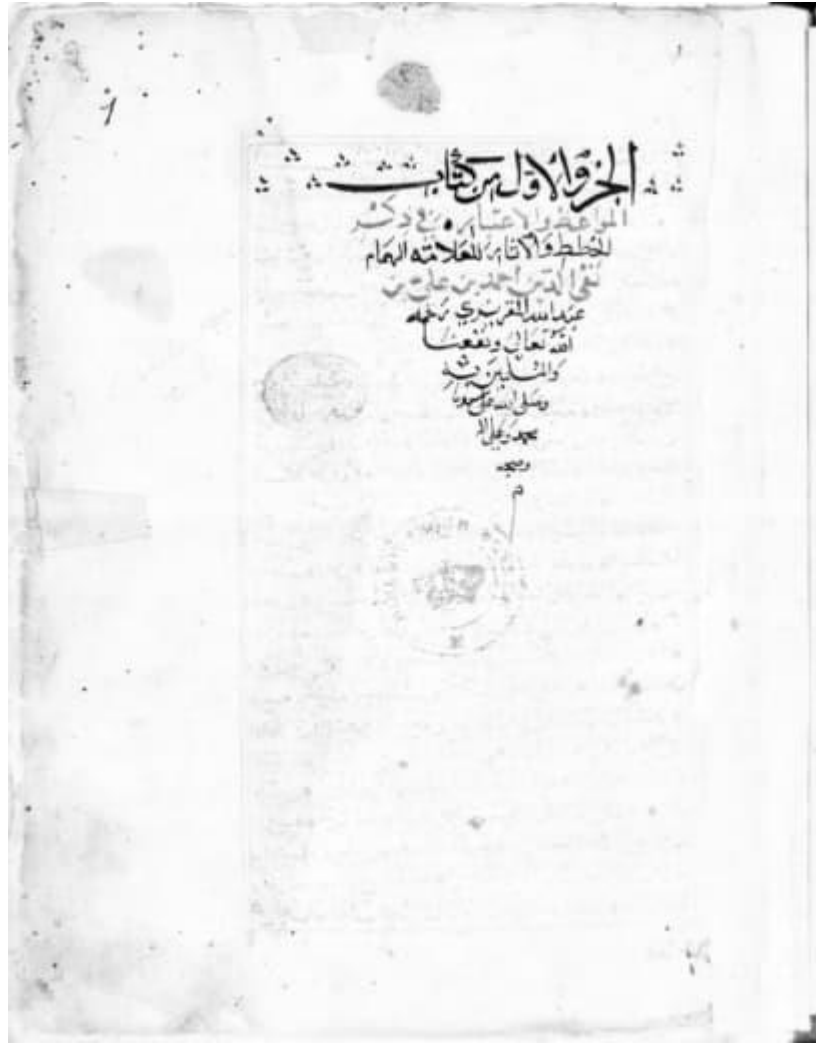 الجزو الاول من كتاب
المواعظ والاعتبار في ذكر
الخطط والاثار للعلامه الهمام
تقي الدين احمد بن علي بن
عبد الله المقريزي رحمه
الله تعالى ونفعنا
والمسلمين به
وصلى الله على سيدنا
محمد وعلى اله
وصحبه
م